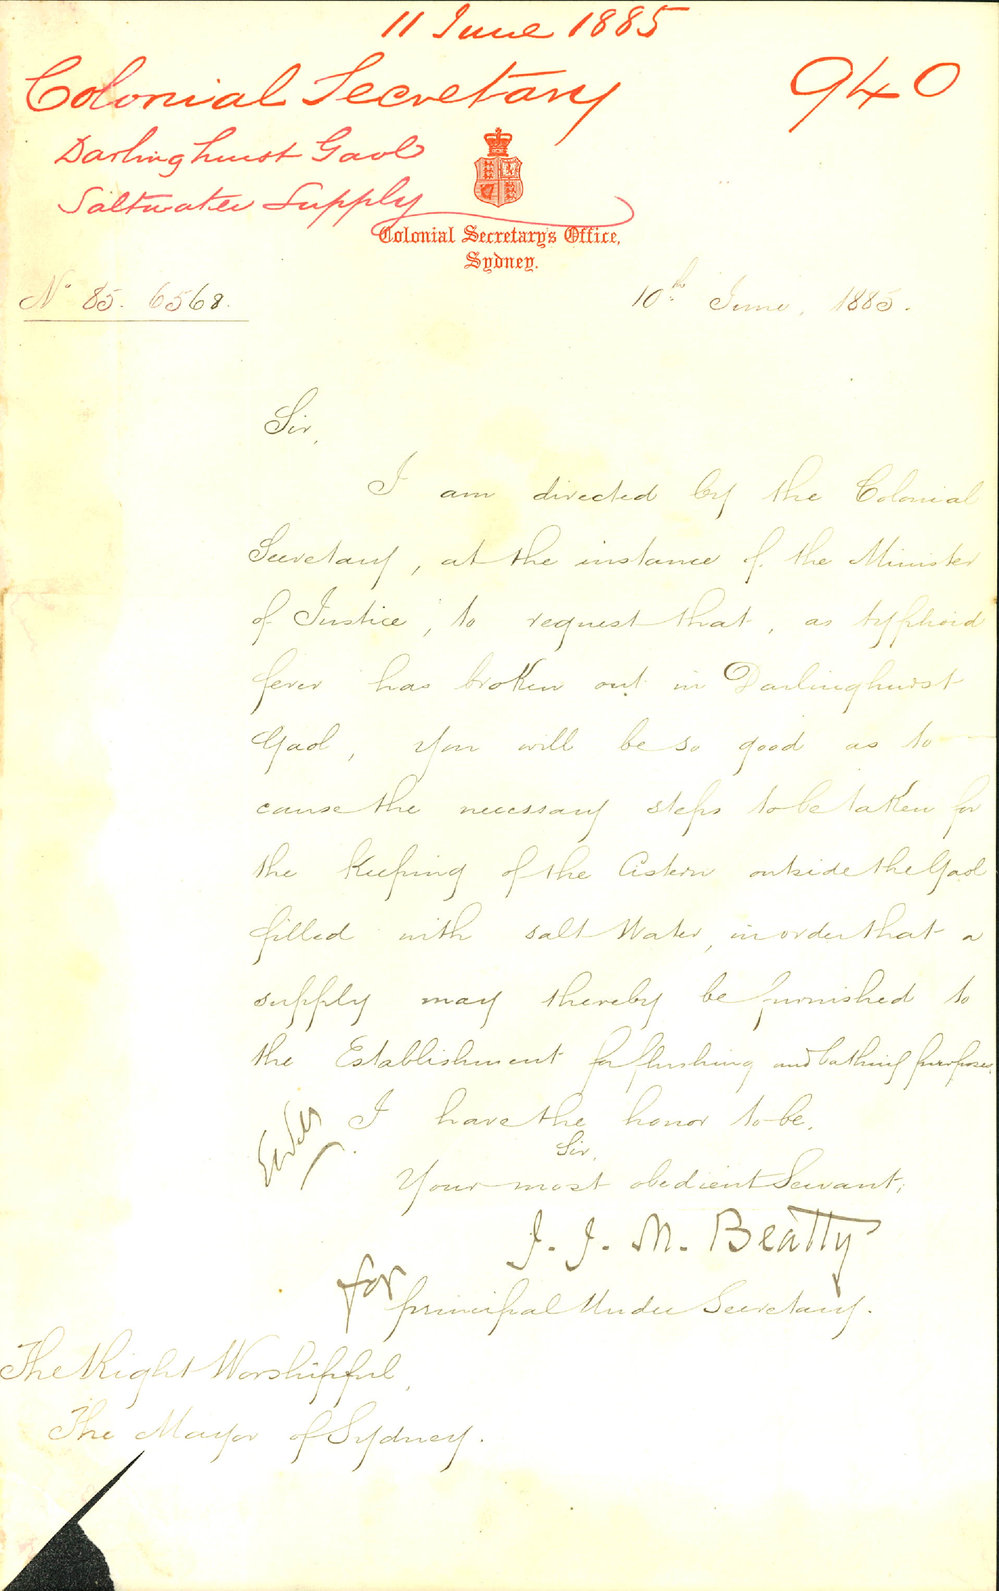 11 June 1885
Colonial Secretary 940
Darlinghurst Gaol
Saltwater Supply
Colonial Secretary's Office,
Sydney.
No 85. 6568.
10th June, 1885.
Sir,
I am directed by the Colonial
Secretary, at the instance of the Minister
of Justice, to request that, as typhoid
fever has broken out in Darlinghurst
Gaol, you will be so good as to
cause the necessary steps to be taken for
the keeping of the Cistern outside the Gaol
filled with salt Water, in order that a
supply may thereby be furnished to
the Establishment for flushing and bathing purposes.
I have the honor to be,
Sir,
Your most obedient Servant,
J. J. M. Beatty
for
principal Under Secretary.
The Right Worshipful,
The Mayor of Sydney.